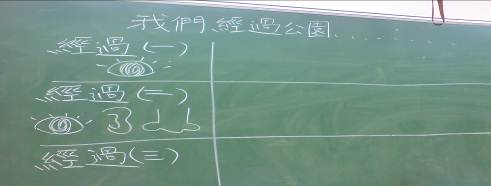 我們經過公園......
經過(一)
經過(一)
經過(三)